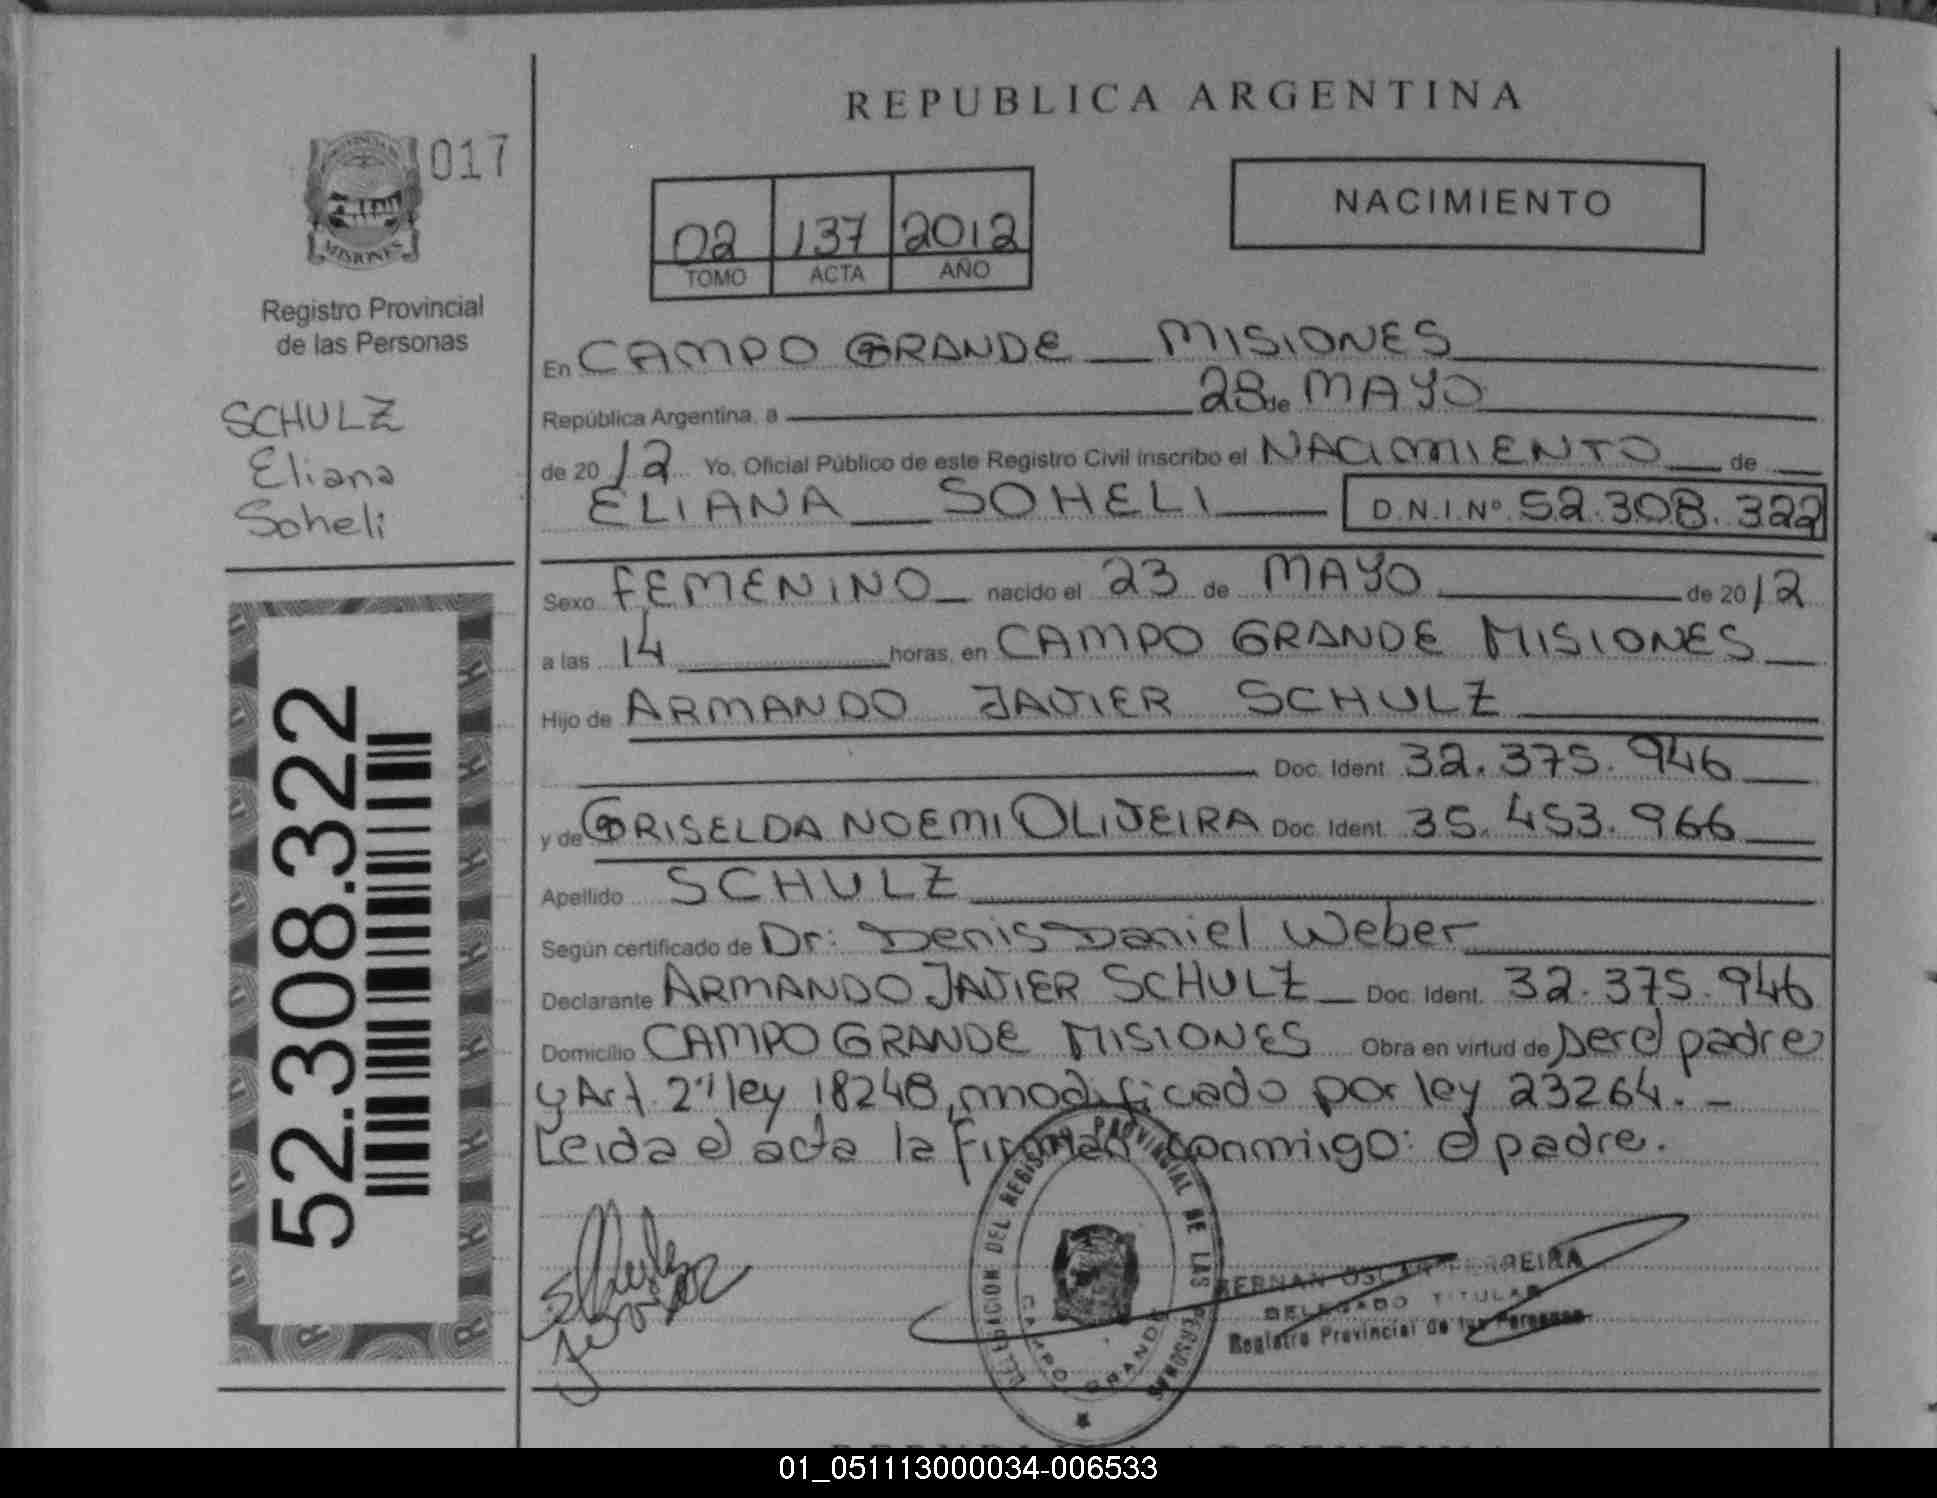 REPUBLICA ARGENTINA
017
MISIONES
Registro Provincial
de las Personas
SCHULZ
Eliana
Soheli
52.308.322
02 137 2012
TOMO ACTA AÑO
NACIMIENTO
En CAMPO GRANDE MISIONES
República Argentina, a 28 de MAYO
de 2012 Yo, Oficial Público de este Registro Civil inscribo el NACIMIENTO de
ELIANA SOHELI D.N.I. Nº 52.308.322
Sexo FEMENINO nacido el 23 de MAYO de 2012
a las 14 horas, en CAMPO GRANDE MISIONES
Hijo de ARMANDO JAVIER SCHULZ
Doc. Ident. 32.375.946
y de GRISELDA NOEMI OLIVEIRA Doc. Ident. 35.453.966
Apellido SCHULZ
Según certificado de Dr: Denis Daniel Weber
Declarante ARMANDO JAVIER SCHULZ Doc. Ident. 32.375.946
Domicilio CAMPO GRANDE MISIONES Obra en virtud de ser el padre
y Art. 2" ley 18248, modificado por ley 23264. -
Leida el acta la firman conmigo: el padre.
DELEGACION DEL REGISTRO PROVINCIAL DE LAS PERSONAS
CAMPO GRANDE
OSCAR FERREIRA
DELEGADO TITULAR
Registro Provincial de las Personas
REPUBLICA ARGENTINA
01_051113000034-006533